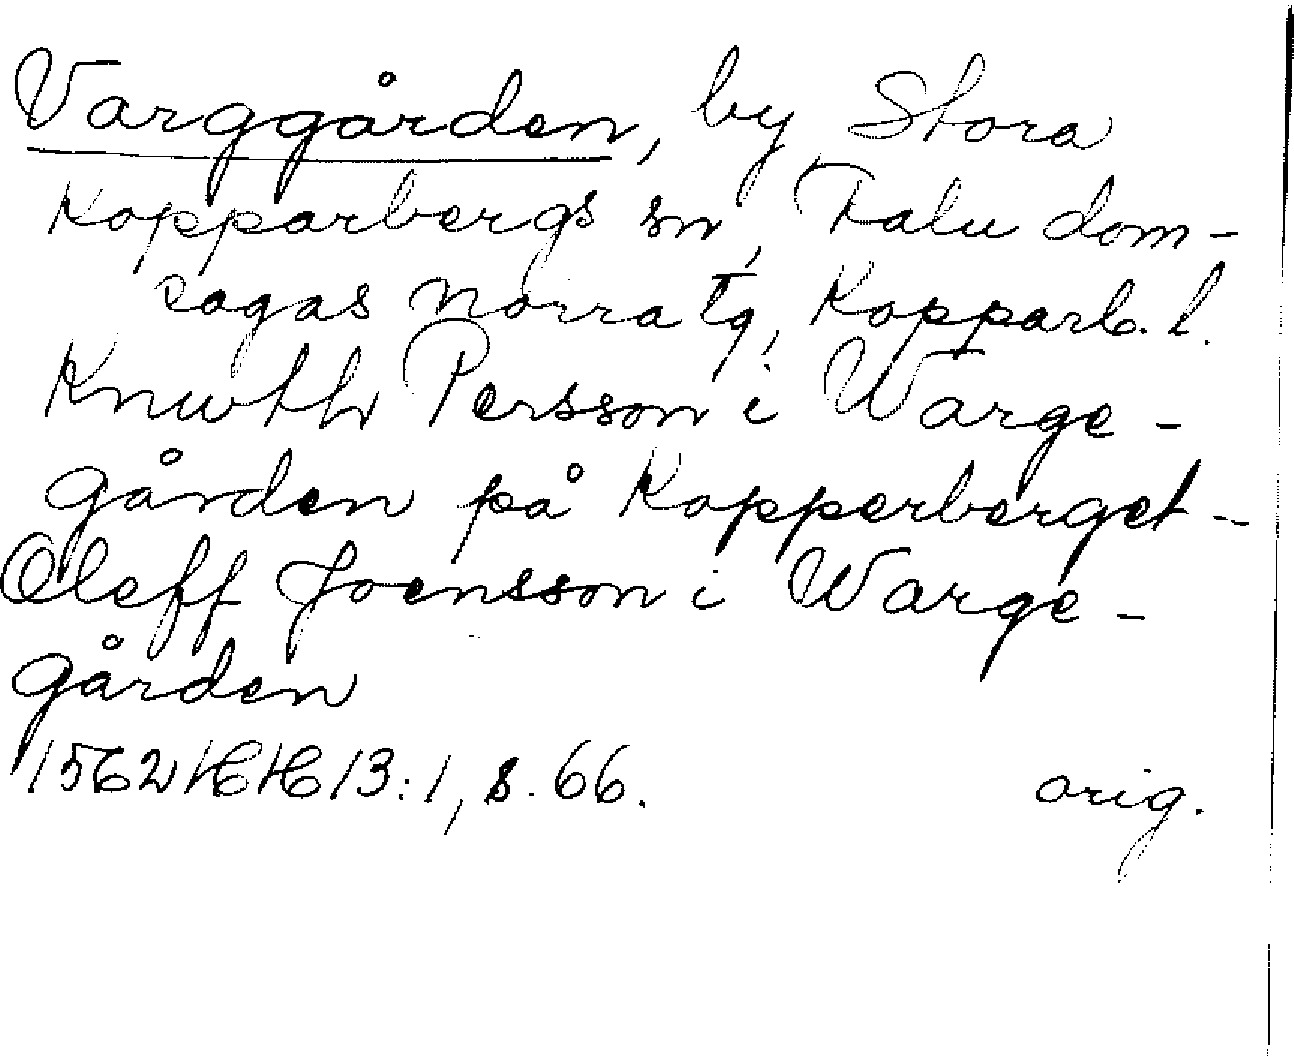 Varggården, by, Stora
Kopparbergs sn, Falu dom-
sagas norra tg, Kopparb. l.
Knwth Persson i Warge-
gården på Kopperberget -
Oleff Joensson i Warge-
gården
1562 HH 13:1, s. 66. orig.